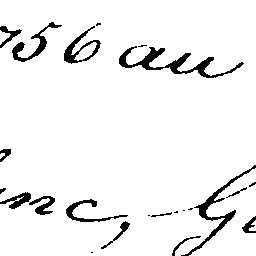 756 au
inc, Ge